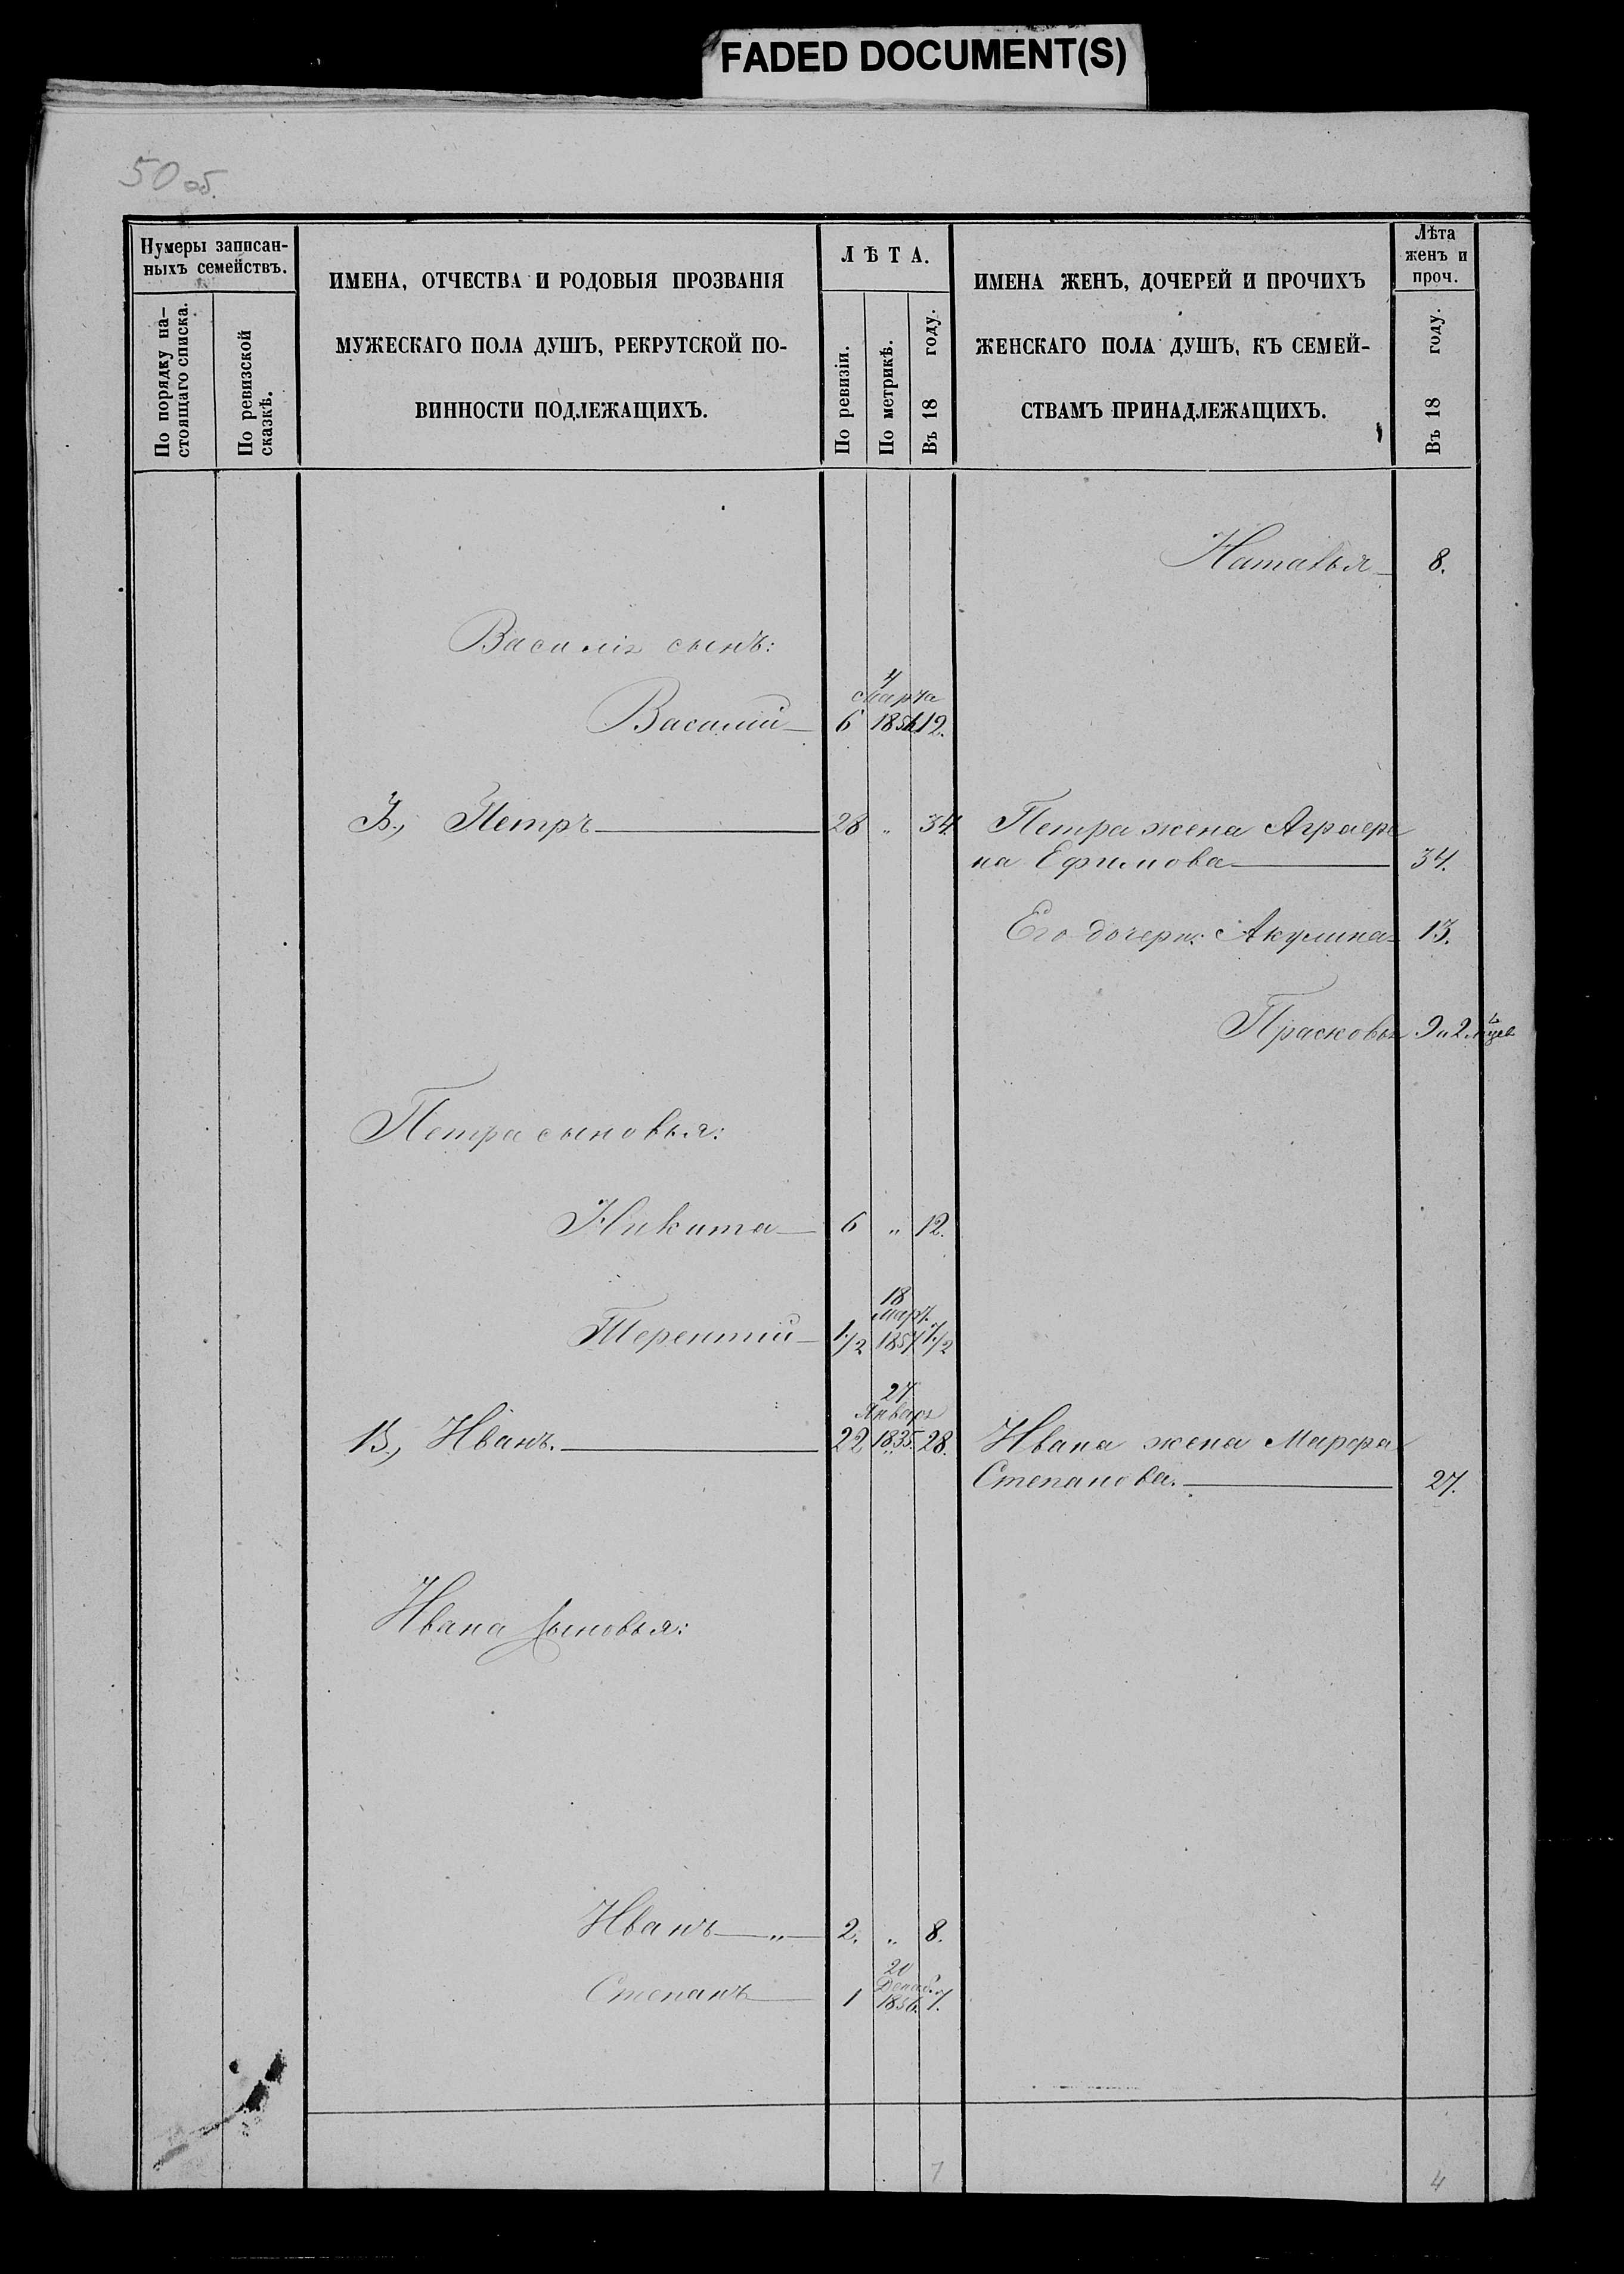 FADED DOCUMENT(S)
50 об.
Нумеры записан-
ныхъ семействъ.
По порядку на-
стоящаго списка.
По ревизской
сказкѣ.
ИМЕНА, ОТЧЕСТВА И РОДОВЫЯ ПРОЗВАНІЯ
МУЖЕСКАГО ПОЛА ДУШЪ, РЕКРУТСКОЙ ПО-
ВИННОСТИ ПОДЛЕЖАЩИХЪ.
ЛѢТА.
По ревизіи.
По метрикѣ.
Въ 18 году.
ИМЕНА ЖЕНЪ, ДОЧЕРЕЙ И ПРОЧИХЪ
ЖЕНСКАГО ПОЛА ДУШЪ, КЪ СЕМЕЙ-
СТВАМЪ ПРИНАДЛЕЖАЩИХЪ.
Лѣта
женъ и
проч.
Въ 18 году.
Наталья 8.
Василія сынъ:
4
Марта
Василій 6 1851 12.
Петръ 28 „ 34 Петра жена Аграфе
на Ефимова 34.
Его дочери: Акулина 13.
Прасковья 9 и 2 мцев
Петра сыновья:
Никита 6 „ 12.
18
Март.
Терентій 1/2 1857 7/2
27
Январ
В, Иванъ. 22 1835. 28. Ивана жена Марфа
Степанова. 27.
Ивана сыновья:
Иванъ „ 2. „ 8.
20
Декаб.
Степанъ 1 1856. 7.
7 4